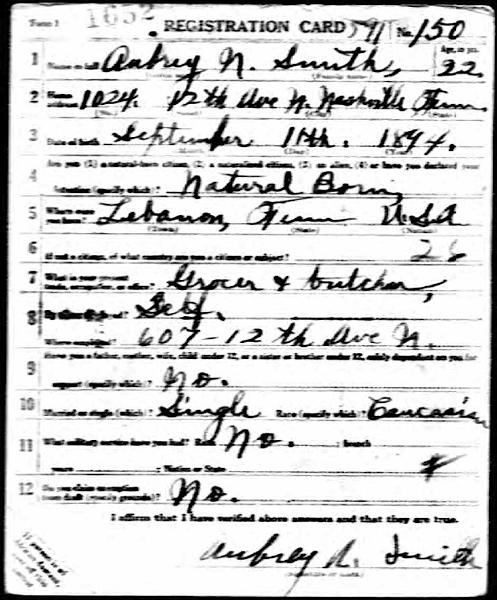 Form 1 1652 REGISTRATION CARD 591 No. 150
1 Name in full Aubrey N. Smith, Age, in yrs. 22
(Family name)
2 Home address 1024. 12th Ave N. Nashville, Tenn.
(No.) (State)
3 Date of birth September 11th. 1894.
(Day) (Year)
4 Are you (1) a natural-born citizen, (2) a naturalized citizen, (3) an alien, (4) or have you declared your
intention (specify which)? Natural Born
5 Where were you born? Lebanon, Tenn U.S.A
(Town) (State) (Nation)
6 If not a citizen, of what country are you a citizen or subject?
7 What is your present trade, occupation, or office? Grocer & butcher,
8 By whom employed? Self.
Where employed? 607-12th Ave N.
9 Have you a father, mother, wife, child under 12, or a sister or brother under 12, solely dependent on you for
support (specify which)? No.
10 Married or single (which)? Single Race (specify which)? Caucasian
11 What military service have you had? Rank No. ; branch
years ; Nation or State
12 Do you claim exemption from draft (specify grounds)? No.
I affirm that I have verified above answers and that they are true.
Aubrey N. Smith